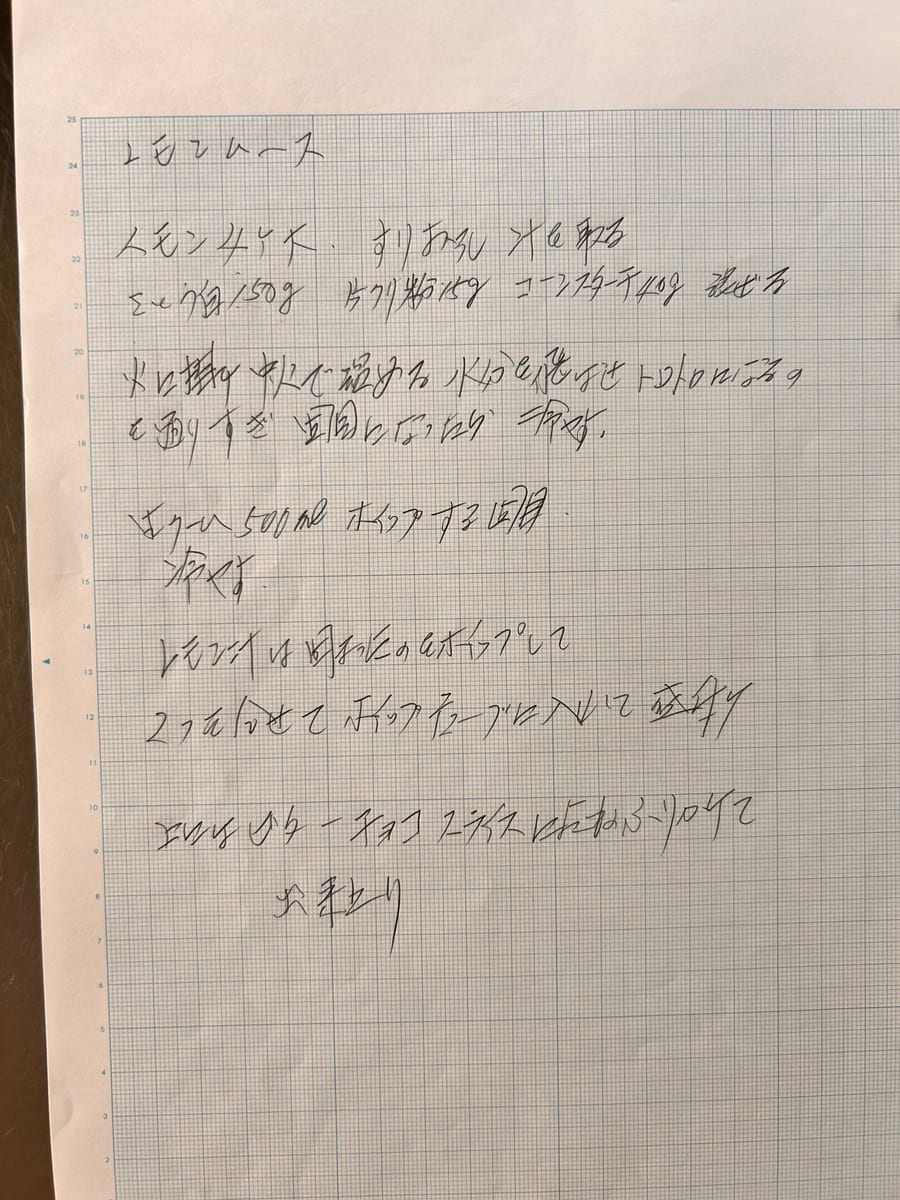 レモンムース
レモン4ケ大. すりおろし 汁を取る
150g 片クリ粉15g コーンスターチ40g 混ぜる
火に掛け 中火で温める 水分を飛ばせ トロトロになるの
を通りすぎ 固目になったら 冷やす.
500ml ホイップする 固目.
冷やす.
レモン汁は固まったのをホイップして
2つを合せて ホイップチューブに入れて 盛付け
上にはビターチョコ スライス ふりかけて
出来上り
25
24
23
22
21
20
19
18
17
16
15
14
13
12
11
10
9
8
7
6
5
4
3
2